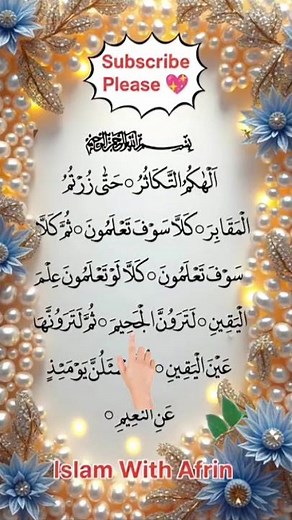 Subscribe
Please 💖
بِسْمِ اللهِ الرَّحْمٰنِ الرَّحِيْمِ
اَلْهٰكُمُ التَّكَاثُرُ ○ حَتّٰى زُرْتُمُ
الْمَقَابِرَ ○ كَلَّا سَوْفَ تَعْلَمُونَ ○ ثُمَّ كَلَّا
سَوْفَ تَعْلَمُونَ ○ كَلَّا لَوْ تَعْلَمُونَ عِلْمَ
الْيَقِينِ ○ لَتَرَوُنَّ الْجَحِيمَ ○ ثُمَّ لَتَرَوُنَّهَا
عَيْنَ الْيَقِينِ ○ يَوْمَئِذٍ
عَنِ النَّعِيمِ ○
Islam With Afrin